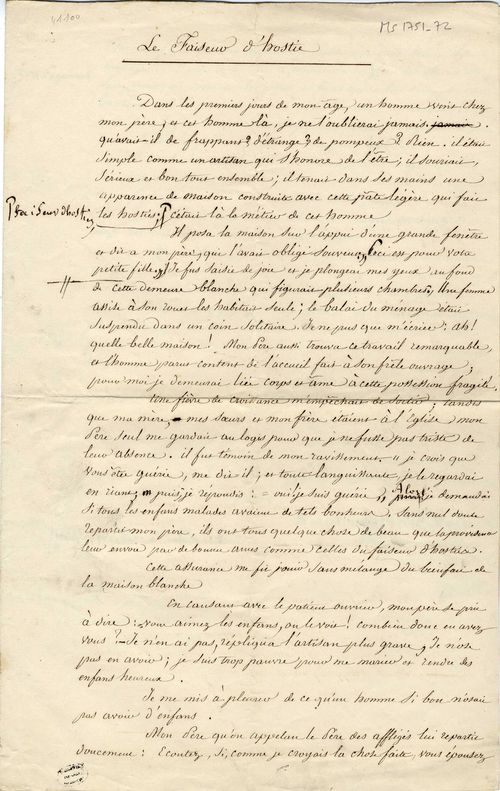 41100
Ms 1751-72
Le Faiseur d'hostie
Dans les premiers jours de mon âge, un homme vint chez
mon père, et cet homme là, je ne l'oublierai jamais.
qu'avait-il de frappant? d'étrange? de pompeux? Rien. il était
simple comme un artisan qui s'honore de l'être; il souriait,
sérieux et bon tout ensemble; il tenait dans ses mains une
apparence de maison construite avec cette pate légère qui fait
les hosties; c'était là le métier de cet homme
Il posa la maison sur l'appui d'une grande fenêtre
et dit a mon père, qui l'avait obligé souvent; Ceci est pour votre
petite fille, Je fus saisie de joie et je plongeai mes yeux au fond
de cette demeure blanche qui figurait plusieurs chambres, Une femme
assise à son rouet les habitait seule; le balai du ménage était
suspendu dans un coin solitaire. Je ne pus que m'écrier: ah!
quelle belle maison! Mon Père aussi trouva ce travail remarquable,
et l'homme parut content de l'accueil fait à son frêle ouvrage;
pour moi je demeurai liée corps et âme à cette possession fragile.
Une fièvre de croissance m'empêchait de sortir; tandis
que ma mère, mes sœurs et mon frère étaient à l'Eglise mon
Père seul me gardait au logis pour que je ne fusse pas triste de
leur absence. il fut témoin de mon ravissement. " je crois que
vous être guérie, me dit il; et toute languissante, je le regardai
en riant, puis je répondis: = oui! je suis guérie " Alors je demandai
si tous les enfants malades avaient de tels bonheurs. Sans nul doute
repartit mon père, ils ont tous quelque chose de beau que la providence
leur envoie par de bonnes ames comme celles du faiseur d'hosties.
Cette assurance me fit jouir sans mélange du bienfait de
la maison blanche
En causant avec le patient ouvrier, mon père se prit
à dire: vous aimez les enfans, on le voit! combien donc en avez
vous? - Je n'en ai pas, répliqua l'artisan plus grave, Je n'ose
pas en avoir; je suis trop pauvre pour me marier et rendre des
enfans heureux.
Je me mis à pleurer de ce qu'un homme si bon n'osait
pas avoir d'enfans.
Mon Père qu'on appelait le Père des affligés lui repartit
doucement: Ecoutez, si, comme je croyais la chose faite, vous épousez